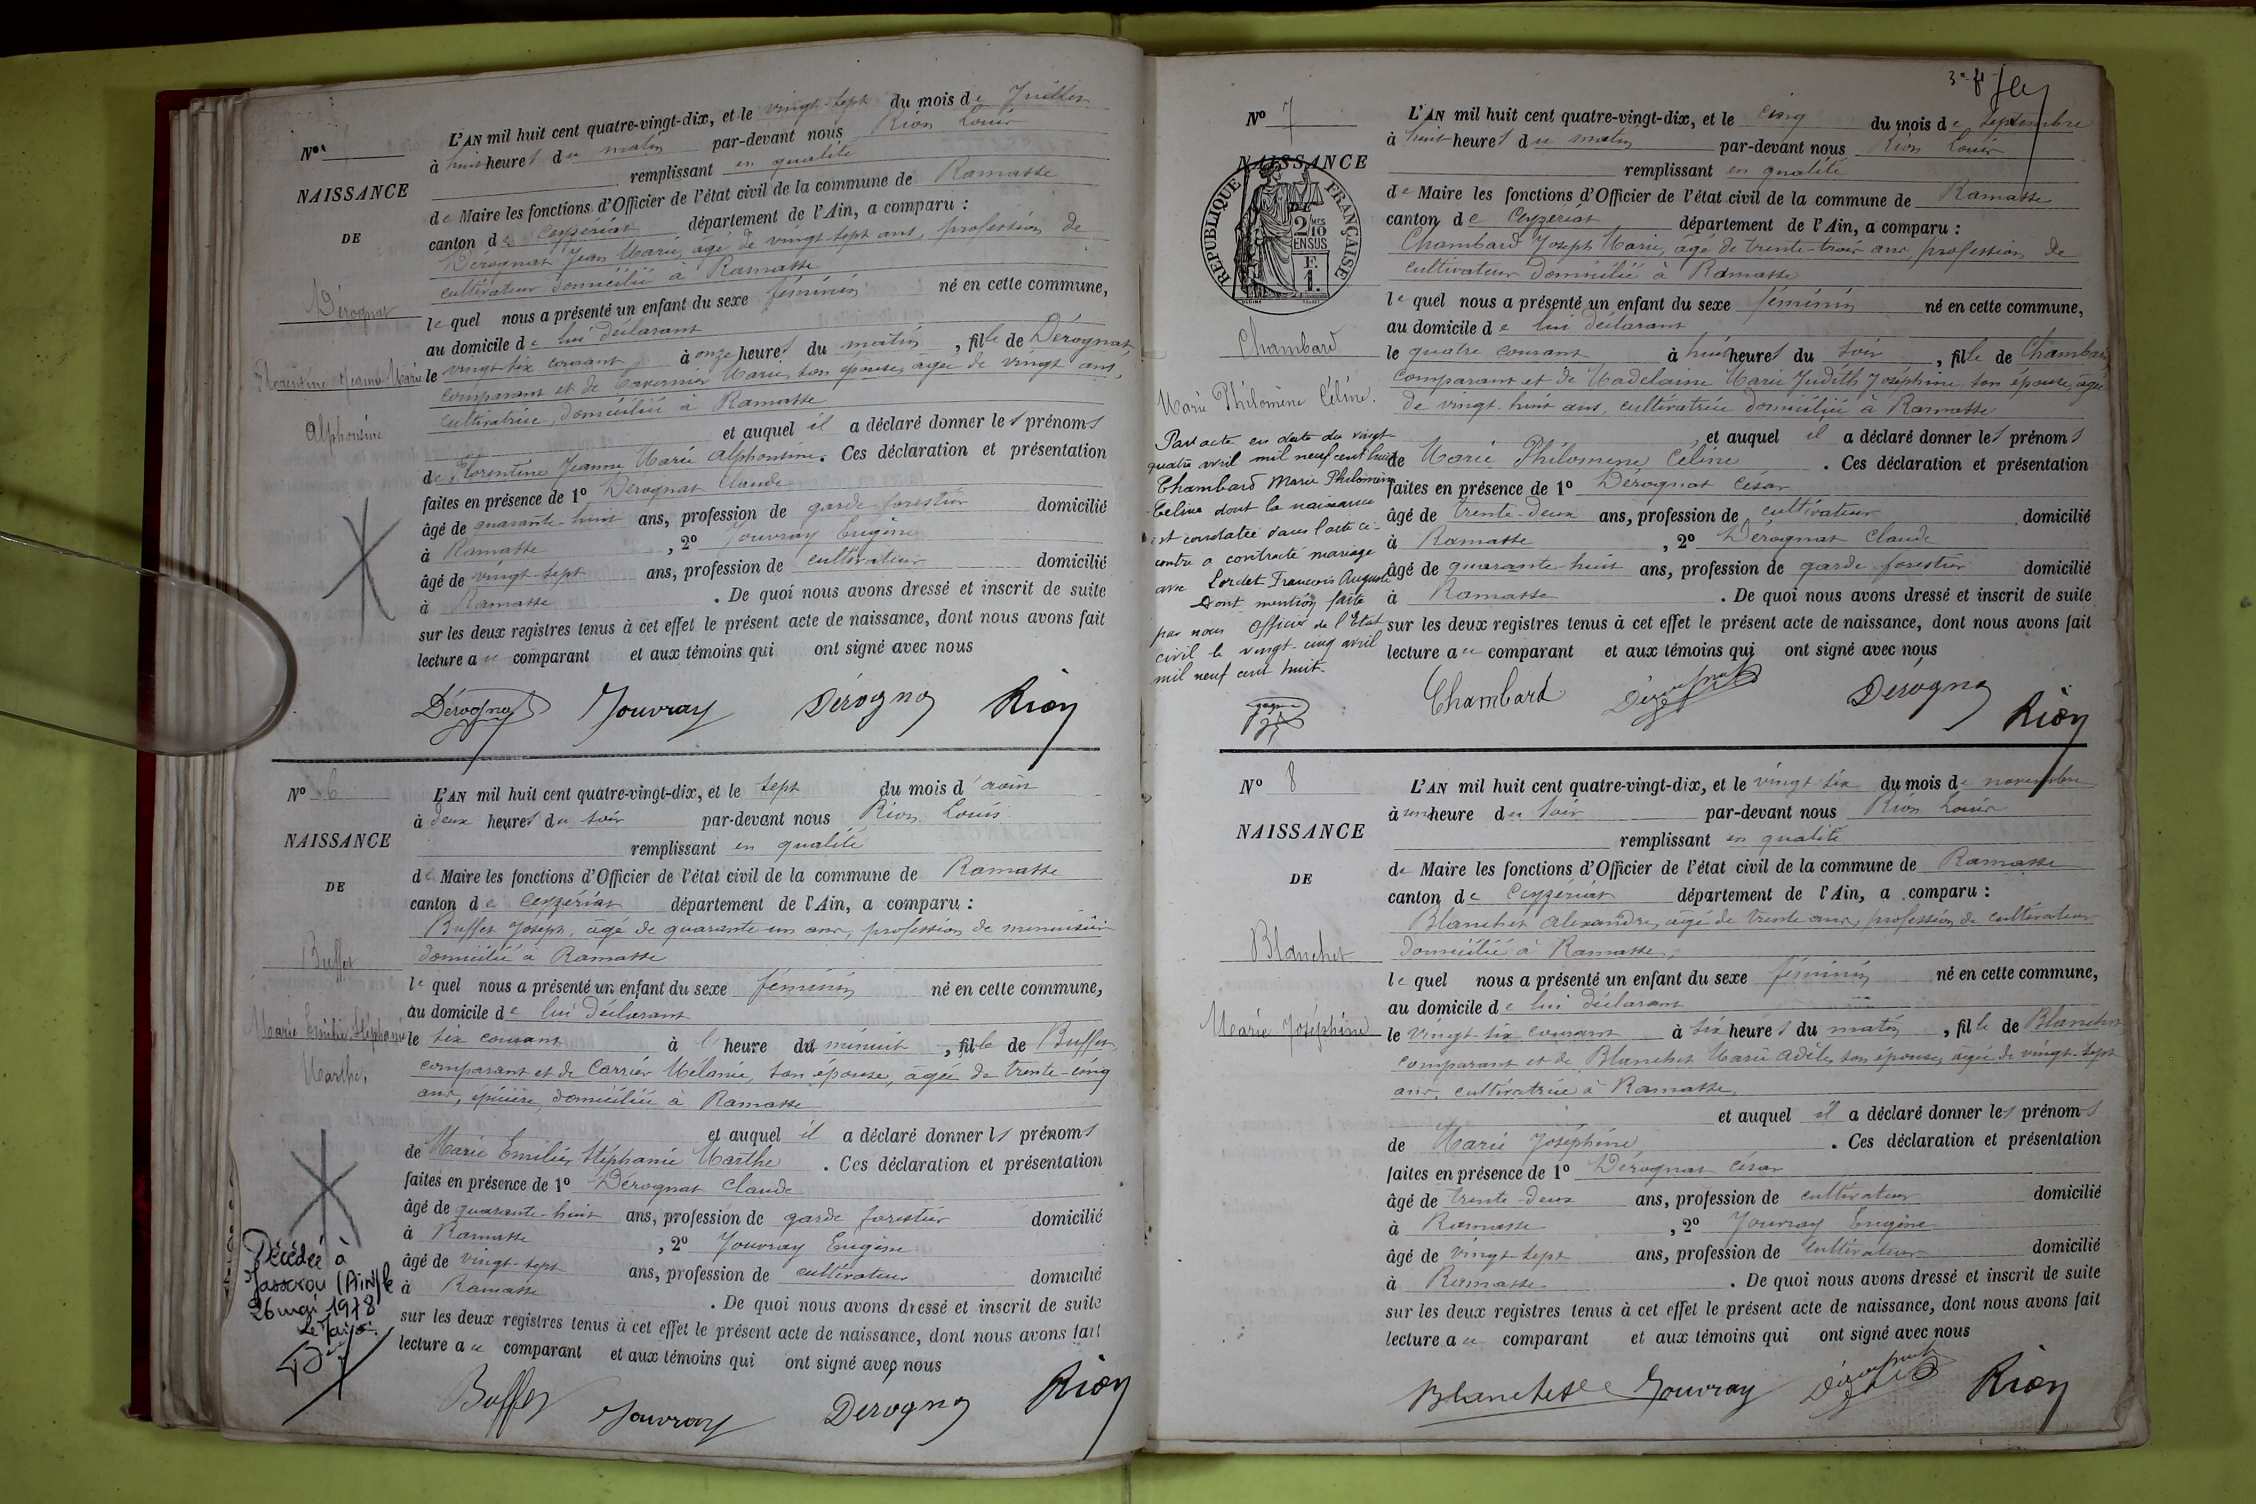 N°
NAISSANCE
DE
Dérognat
Florentine Jeanne Marie
Alphonsine
L'AN mil huit cent quatre-vingt-dix, et le vingt-sept du mois de Juillet
à huit heures du matin par-devant nous Rion Louis
remplissant en qualité
de Maire les fonctions d'Officier de l'état civil de la commune de Ramasse
canton de Ceyzériat département de l'Ain, a comparu :
Dérognat Jean Marie, agé de vingt-sept ans, profession de
cultivateur domicilié à Ramasse
lequel nous a présenté un enfant du sexe féminin né en cette commune,
au domicile de lui déclarant
le vingt-six courant à onze heures du matin, fille de Dérognat
comparant et de Tavernier Marie, son épouse, agée de vingt ans,
cultivatrice, domiciliée à Ramasse
et auquel il a déclaré donner les prénoms
de Florentine Jeanne Marie Alphonsine. Ces déclaration et présentation
faites en présence de 1° Dérognat Claude
âgé de quarante-huit ans, profession de garde forestier domicilié
à Ramasse, 2° Jouvray Eugène
âgé de vingt-sept ans, profession de cultivateur domicilié
à Ramasse. De quoi nous avons dressé et inscrit de suite
sur les deux registres tenus à cet effet le présent acte de naissance, dont nous avons fait
lecture au comparant et aux témoins qui ont signé avec nous
Dérognat Jouvray Dérogna Rion
N° 6
NAISSANCE
DE
Buffet
Marie Emilie Stéphanie
Marthe
Décédée à
Jasseron (Ain) le
26 mai 1978
Le Maire
L'AN mil huit cent quatre-vingt-dix, et le sept du mois d'août
à deux heures du soir par-devant nous Rion Louis
remplissant en qualité
de Maire les fonctions d'Officier de l'état civil de la commune de Ramasse
canton de Ceyzériat département de l'Ain, a comparu :
Buffet Joseph, âgé de quarante un ans, profession de menuisier
domicilié à Ramasse
lequel nous a présenté un enfant du sexe féminin né en cette commune,
au domicile de lui déclarant
le six courant à l'heure de minuit, fille de Buffet
comparant et de Carrier Mélanie, son épouse, âgée de trente-cinq
ans, épicière, domiciliée à Ramasse
et auquel il a déclaré donner ls prénoms
de Marie Emilie Stéphanie Marthe. Ces déclaration et présentation
faites en présence de 1° Dérognat Claude
âgé de quarante-huit ans, profession de garde forestier domicilié
à Ramasse, 2° Jouvray Eugène
âgé de vingt-sept ans, profession de cultivateur domicilié
à Ramasse. De quoi nous avons dressé et inscrit de suite
sur les deux registres tenus à cet effet le présent acte de naissance, dont nous avons fait
lecture au comparant et aux témoins qui ont signé avec nous
Buffet Jouvray Derogna Rion
N° 7
NAISSANCE
DE
RÉPUBLIQUE FRANÇAISE
2/10 EN SUS
F. 1.
Chambard
Marie Philomène Céline.
Par acte en date du vingt-
quatre avril mil neuf cent huit
Chambard Marie Philomène
Céline dont la naissance
est constatée dans l'acte ci-
contre a contracté mariage
avec Lordet François Auguste
Dont mention faite
par nous Officier de l'Etat
civil le vingt-cinq avril
mil neuf cent huit.
L'AN mil huit cent quatre-vingt-dix, et le cinq du mois de septembre
à huit heures du matin par-devant nous Rion Louis
remplissant en qualité
de Maire les fonctions d'Officier de l'état civil de la commune de Ramasse
canton de Ceyzériat département de l'Ain, a comparu :
Chambard Joseph Marie, âgé de trente-trois ans, profession de
cultivateur domicilié à Ramasse
lequel nous a présenté un enfant du sexe féminin né en cette commune,
au domicile de lui déclarant
le quatre courant à huit heures du soir, fille de Chambard
comparant et de Madelaine Marie Judith Joséphine, son épouse, âgée
de vingt-huit ans, cultivatrice domiciliée à Ramasse
et auquel il a déclaré donner les prénoms
de Marie Philomène Céline. Ces déclaration et présentation
faites en présence de 1° Dérognat César
âgé de trente-deux ans, profession de cultivateur domicilié
à Ramasse, 2° Dérognat Claude
âgé de quarante-huit ans, profession de garde forestier domicilié
à Ramasse. De quoi nous avons dressé et inscrit de suite
sur les deux registres tenus à cet effet le présent acte de naissance, dont nous avons fait
lecture au comparant et aux témoins qui ont signé avec nous
Chambard Dérognat Derogna Rion
N° 8
NAISSANCE
DE
Blanchet
Marie Joséphine
L'AN mil huit cent quatre-vingt-dix, et le vingt-six du mois de novembre
à une heure du soir par-devant nous Rion Louis
remplissant en qualité
de Maire les fonctions d'Officier de l'état civil de la commune de Ramasse
canton de Ceyzériat département de l'Ain, a comparu :
Blanchet Alexandre, âgé de trente ans, profession de cultivateur
domicilié à Ramasse,
lequel nous a présenté un enfant du sexe féminin né en cette commune,
au domicile de lui déclarant
le vingt-six courant à six heures du matin, fille de Blanchet
comparant et de Blanchet Marie Adèle, son épouse, âgée de vingt-sept
ans, cultivatrice à Ramasse
et auquel il a déclaré donner les prénoms
de Marie Joséphine. Ces déclaration et présentation
faites en présence de 1° Dérognat César
âgé de trente-deux ans, profession de cultivateur domicilié
à Ramasse, 2° Jouvray Eugène
âgé de vingt-sept ans, profession de cultivateur domicilié
à Ramasse. De quoi nous avons dressé et inscrit de suite
sur les deux registres tenus à cet effet le présent acte de naissance, dont nous avons fait
lecture au comparant et aux témoins qui ont signé avec nous
Blanchet Jouvray Dérognat Rion